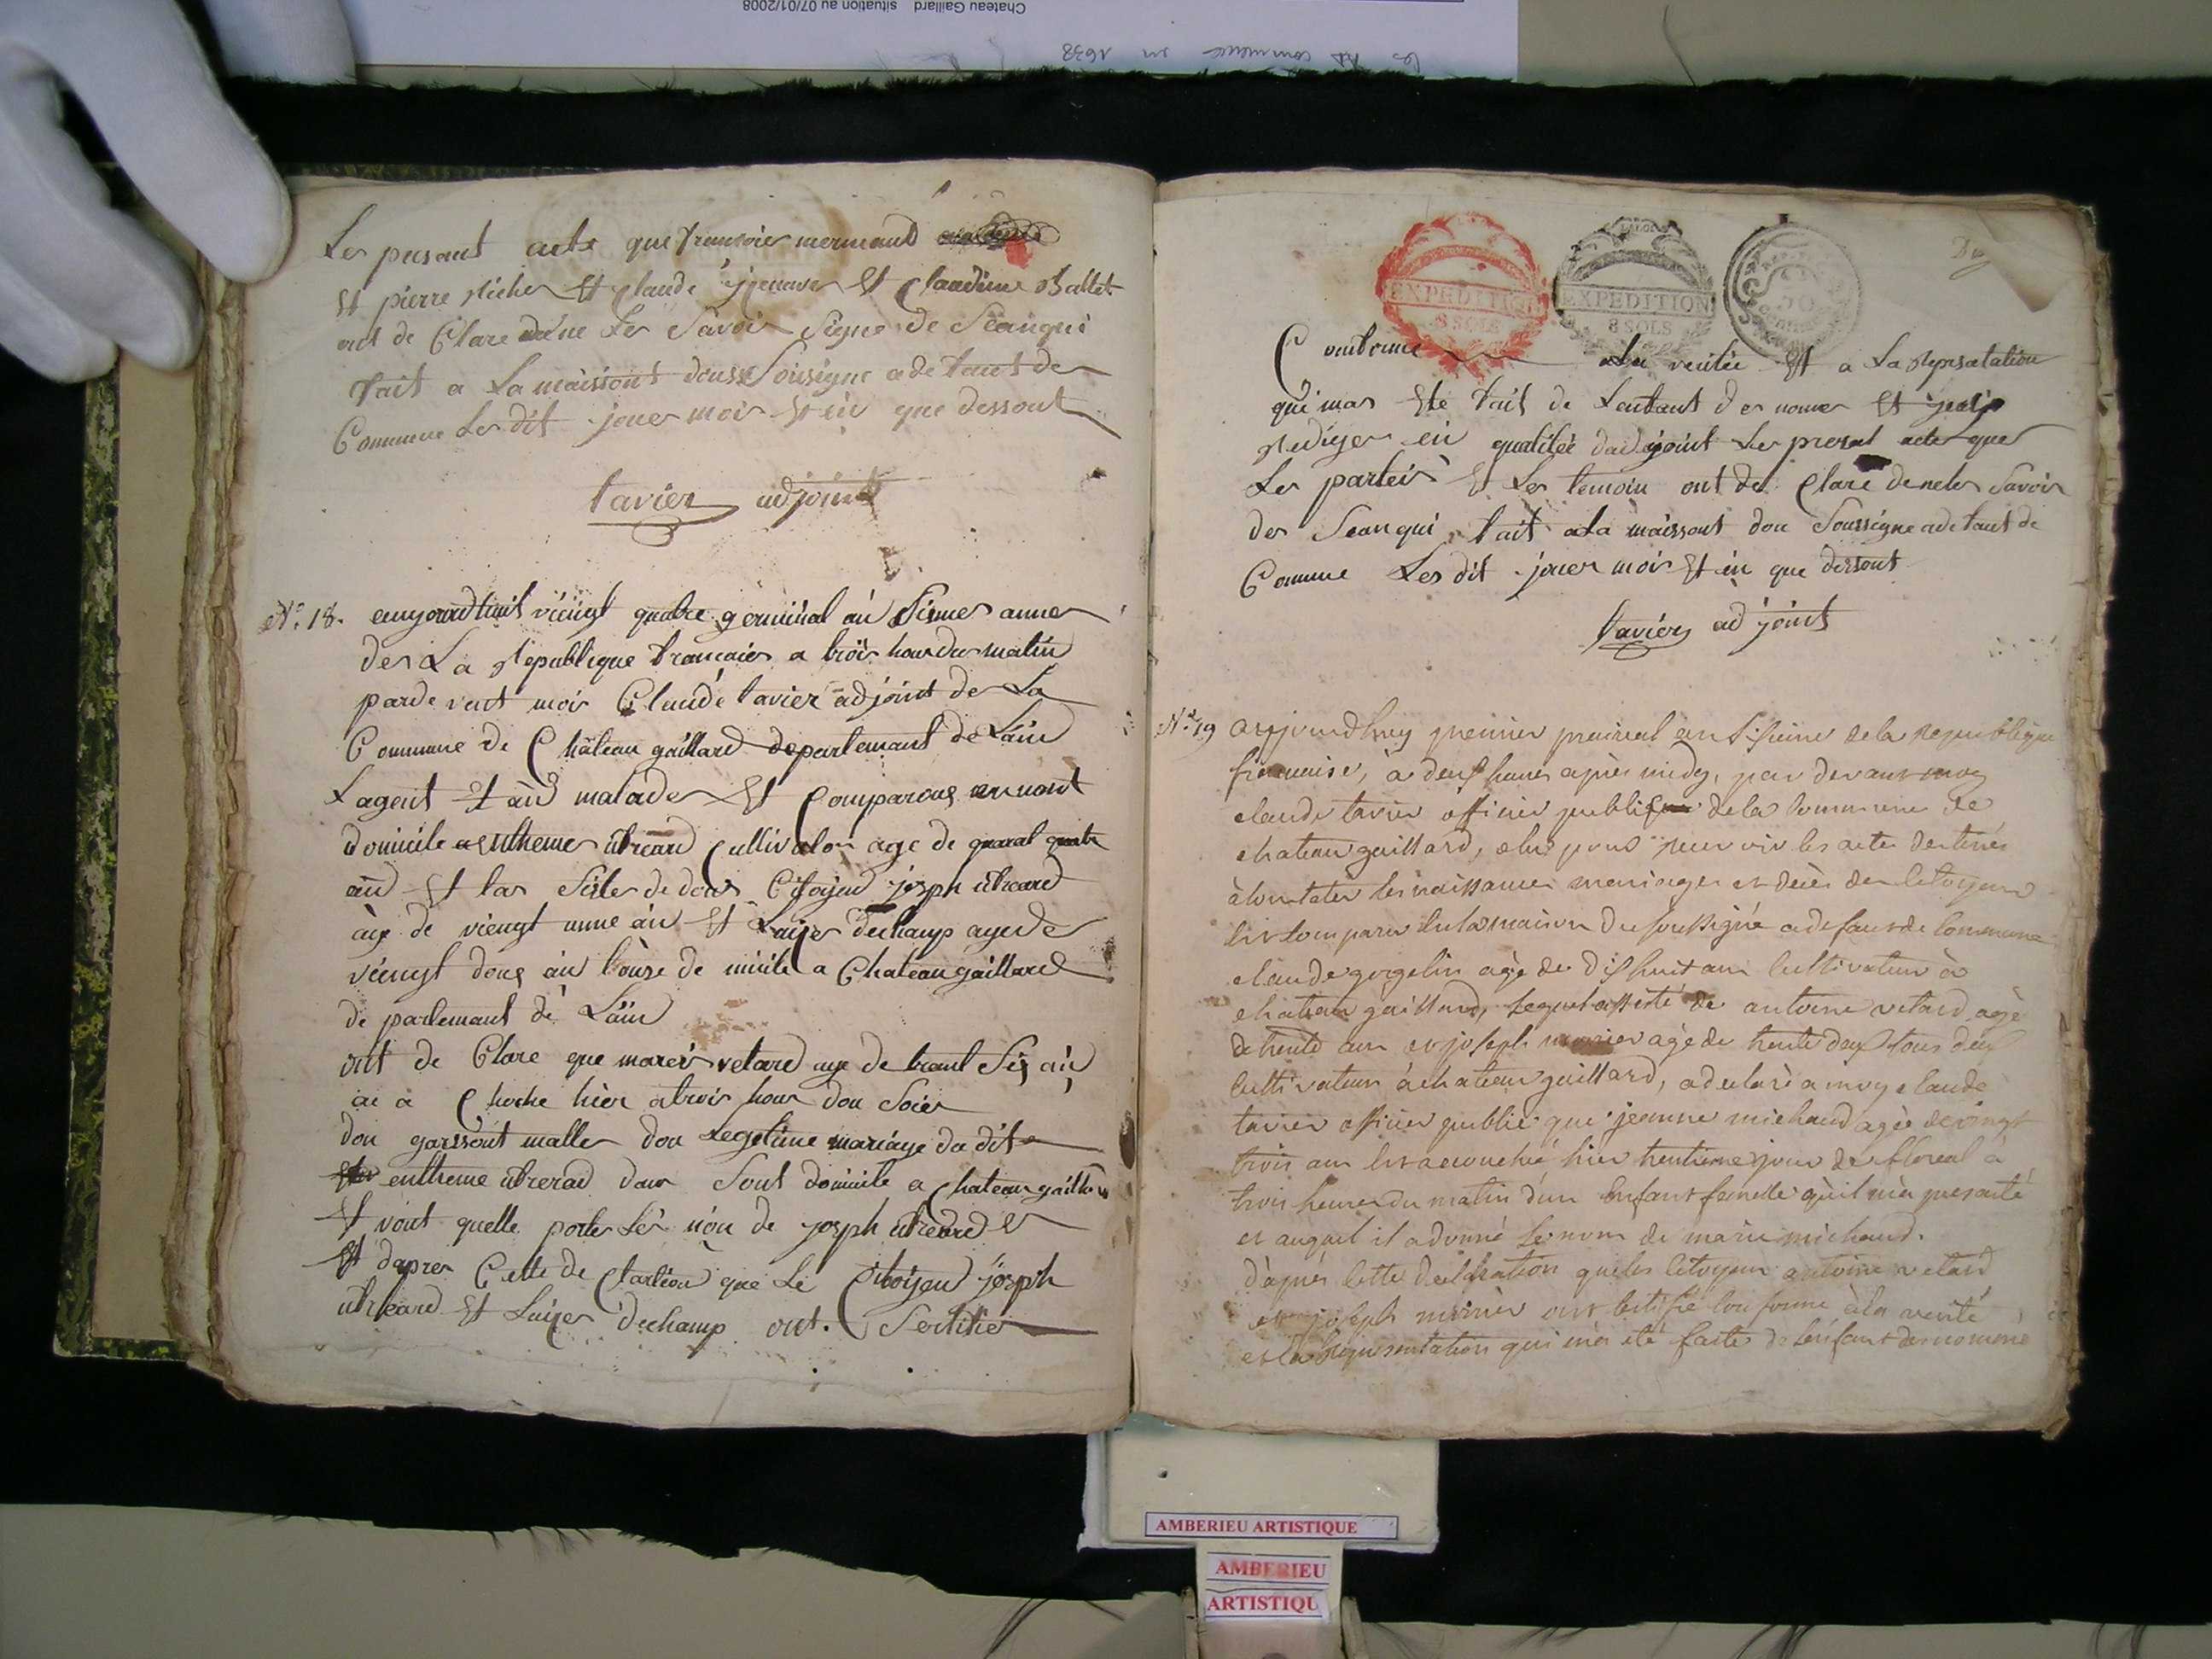 Chateau Gaillard situation au 07/01/2008
commence en 1638
Les pesant acte que francoier mermand
Et pierre richer Et claude jeneuver Et claudine ballet
ont de Clare ne Les Savoir Signe de Seanqui
fait a La maissont douss Sousigne a defaut de
Commune Les dit jouer mois Et ein que dessout
tavier adjoint
N° 18. aujourdhuit viengt quatre germinal an Sisme anne
der La Republique francaier a trois hour du matin
parde vant moir Claude tavier adjoint de La
Commune de Chateau gaillard departemant de Lain
Lagent Et and malade Et Comparous
domicile entheme Cullivator age de quarat quatre
and Et las Siste de dous Citoijend joseph
age de viengt unne an Et Laijer dechamp ayede
viengt dous an touse de micile a Chateau gaillard
de partemant de Lain
ont de Clare que mareir vetard age de trant Six an
ai a Choche hier a trois hour dou Soier
dou garssont malle dou Legetime mariage du dit
entheme dans Sout domicile a Chateau gaillard
Et vout quelle porte Les non de joseph
Et dapres Cette de Clartion que Le Citoijend joseph
Et Laijer dechamp ont Sertitier
EXPEDITION
8 SOLS
LA LOI
EXPEDITION
8 SOLS
50
centimes
Comtorme ala veritee Et a La Represatation
qui mas Ete fait de Lentant der nomer Et jeaij
Redijer ein qualitee dadjoint Les presat acte que
Les parteir Et Les temoin ont de Clare de neles Savoir
der Seanqui fait ala maissont dou Soussigne a detaut de
Commune Les dit jouer mois Et ein que dessout
tavier adjoint
N° 19 aujourdhuy premier prairial an Sisieme de la Republique
francaise, à deux heures après midy, par devant moy
claude tavier officier public de la Commune de
chateau gaillard, elu pour recevoir les actes destinés
à Constater les naissances mariages et decès des Citoyens
est Comparu en la maison du soussigné a defaut de Commune
claude gogelin agé de dix huit ans Cultivateur à
chateau gaillard, lequel assisté de antoine vetard agé
de trente ans et joseph age de trente deux tous deux
Cultivateurs à chateau gaillard, a declaré a moy claude
tavier officier public que jeanne michaud agée de vingt
trois ans est accouchée hier trentieme jour de floreal à
trois heures du matin d'un Enfant femelle qu'il m'a presenté
et auquel il a donné le nom de marie michaud.
d'après Cette declaration que les Citoyens antoine vetard
et joseph ont Certifié Conforme à la verité
et la Representation qui m'a eté faite de l'enfant denommé
AMBERIEU ARTISTIQUE
AMBERIEU
ARTISTIQU